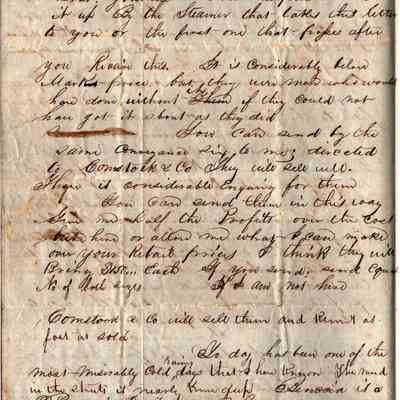 it up by the Steamer that takes this letter
to you or the first one that passes after
you Receive this. It is considerably below
Market price, but they were men who would
have done without them if they could not
have got it about as they did
You can send by the
same conveyance six to me directed
to Comstock & Co They will sell well.
There is considerable Enquiry for them
You can send them in this way
Give me half the Profits over the cost
here or allow me what I can make
over your Retail prices I think they will
Bring Cash If you send, send Equal
No of both sizes If I am not here
Comstock & Co will sell them and Remit as
fast as sold
To day has been one of the
most miserably Cold, rainy days that I have known The mud
in the streets is nearly knee deep is a